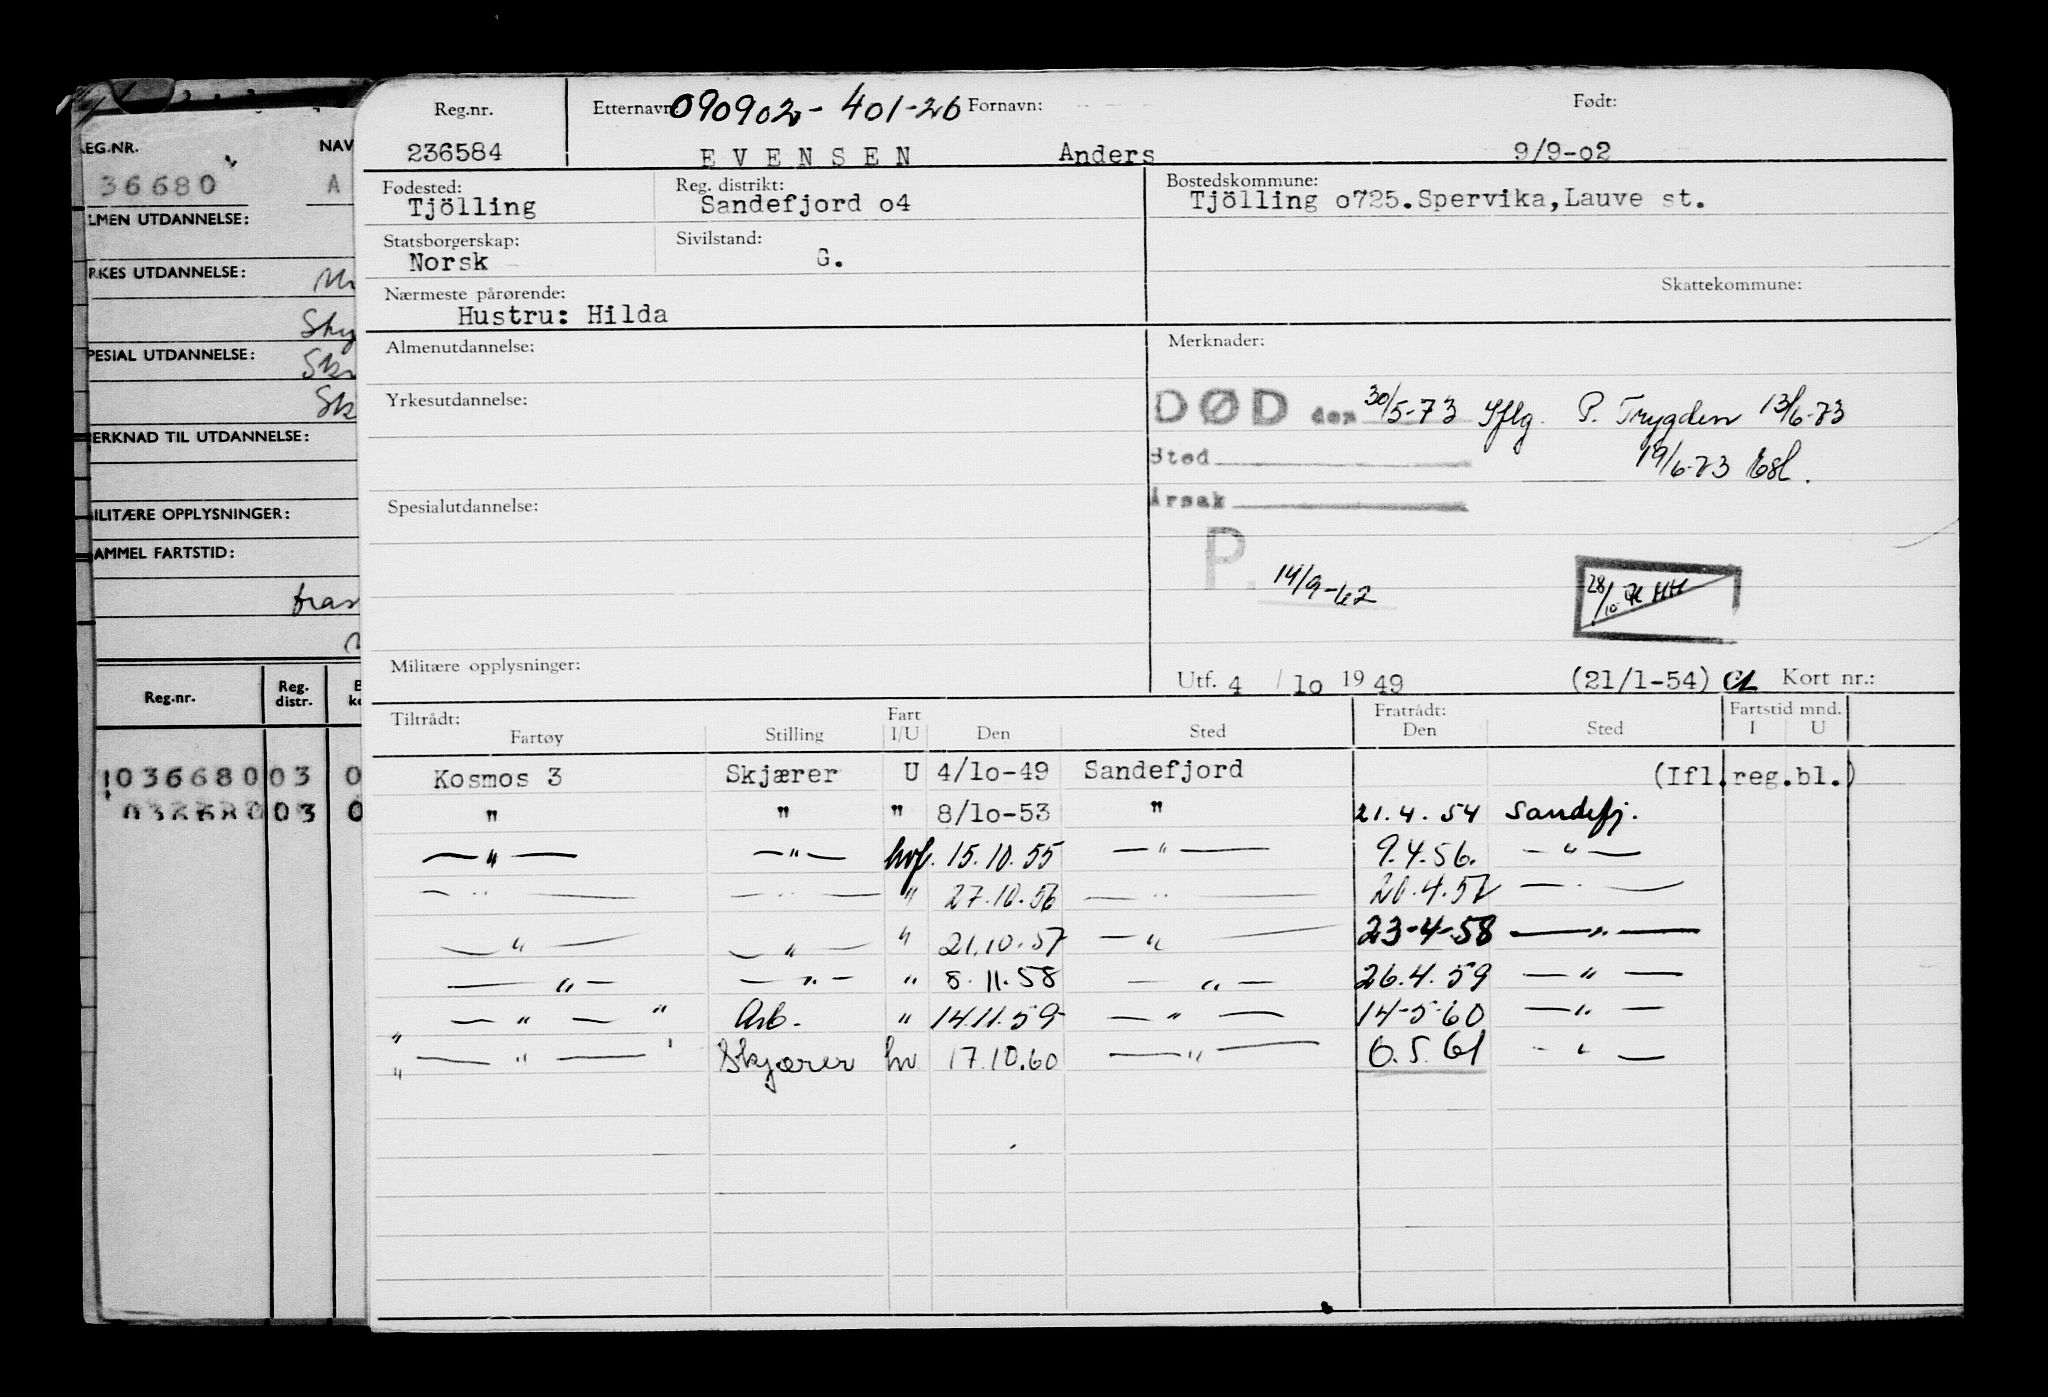 Reg.nr. Etternavn: 090902- 401-26 Fornavn: Født:
236584 E V E N S E N Anders 9/9-o2
Fødested: Reg. distrikt: Bostedskommune:
Tjölling Sandefjord o4 Tjölling o725.Spervika,Lauve st.
Statsborgerskap: Sivilstand:
Norsk G.
Nærmeste pårørende: Skattekommune:
Hustru: Hilda
Almenutdannelse: Merknader:
Yrkesutdannelse: DØD den 30/5-73 Iflg. P. Trygden 13/6-73
Sted 19/6-73
Spesialutdannelse: Årsak
P. 14/9-62 28/10
Militære opplysninger: Utf. 4 / lo 19 49 (21/1-54) Kort nr.:
Tiltrådt: Fart Fratrådt: Fartstid mnd.
Fartøy Stilling I/U Den Sted Den Sted I U
Kosmos 3 Skjærer U 4/lo-49 Sandefjord (Ifl.reg.bl.)
" " " 8/lo-53 " 21.4.54 Sandefj.
— " — — " — hvf. 15.10.55 — " — 9.4.56. — " —
— " — — " — " 27.10.56 — " — 20.4.57 — " —
— " — — " — " 21.10.57 — " — 23-4-58 — " —
— " — — " — " 8.11.58 — " — 26.4.59 — " —
— " — " Arb. " 14.11.59 — " — 14-5-60 — " —
" — " — ' Skjærer hv 17.10.60 — " — 6.5.61 — " —
"
EG.NR. NAV
36680 A
LMEN UTDANNELSE:
RKES UTDANNELSE:
PESIAL UTDANNELSE:
Sk
MERKNAD TIL UTDANNELSE:
MILITÆRE OPPLYSNINGER:
GAMMEL FARTSTID:
Reg.nr. Reg. distr.
036680 03 0
036680 03 0